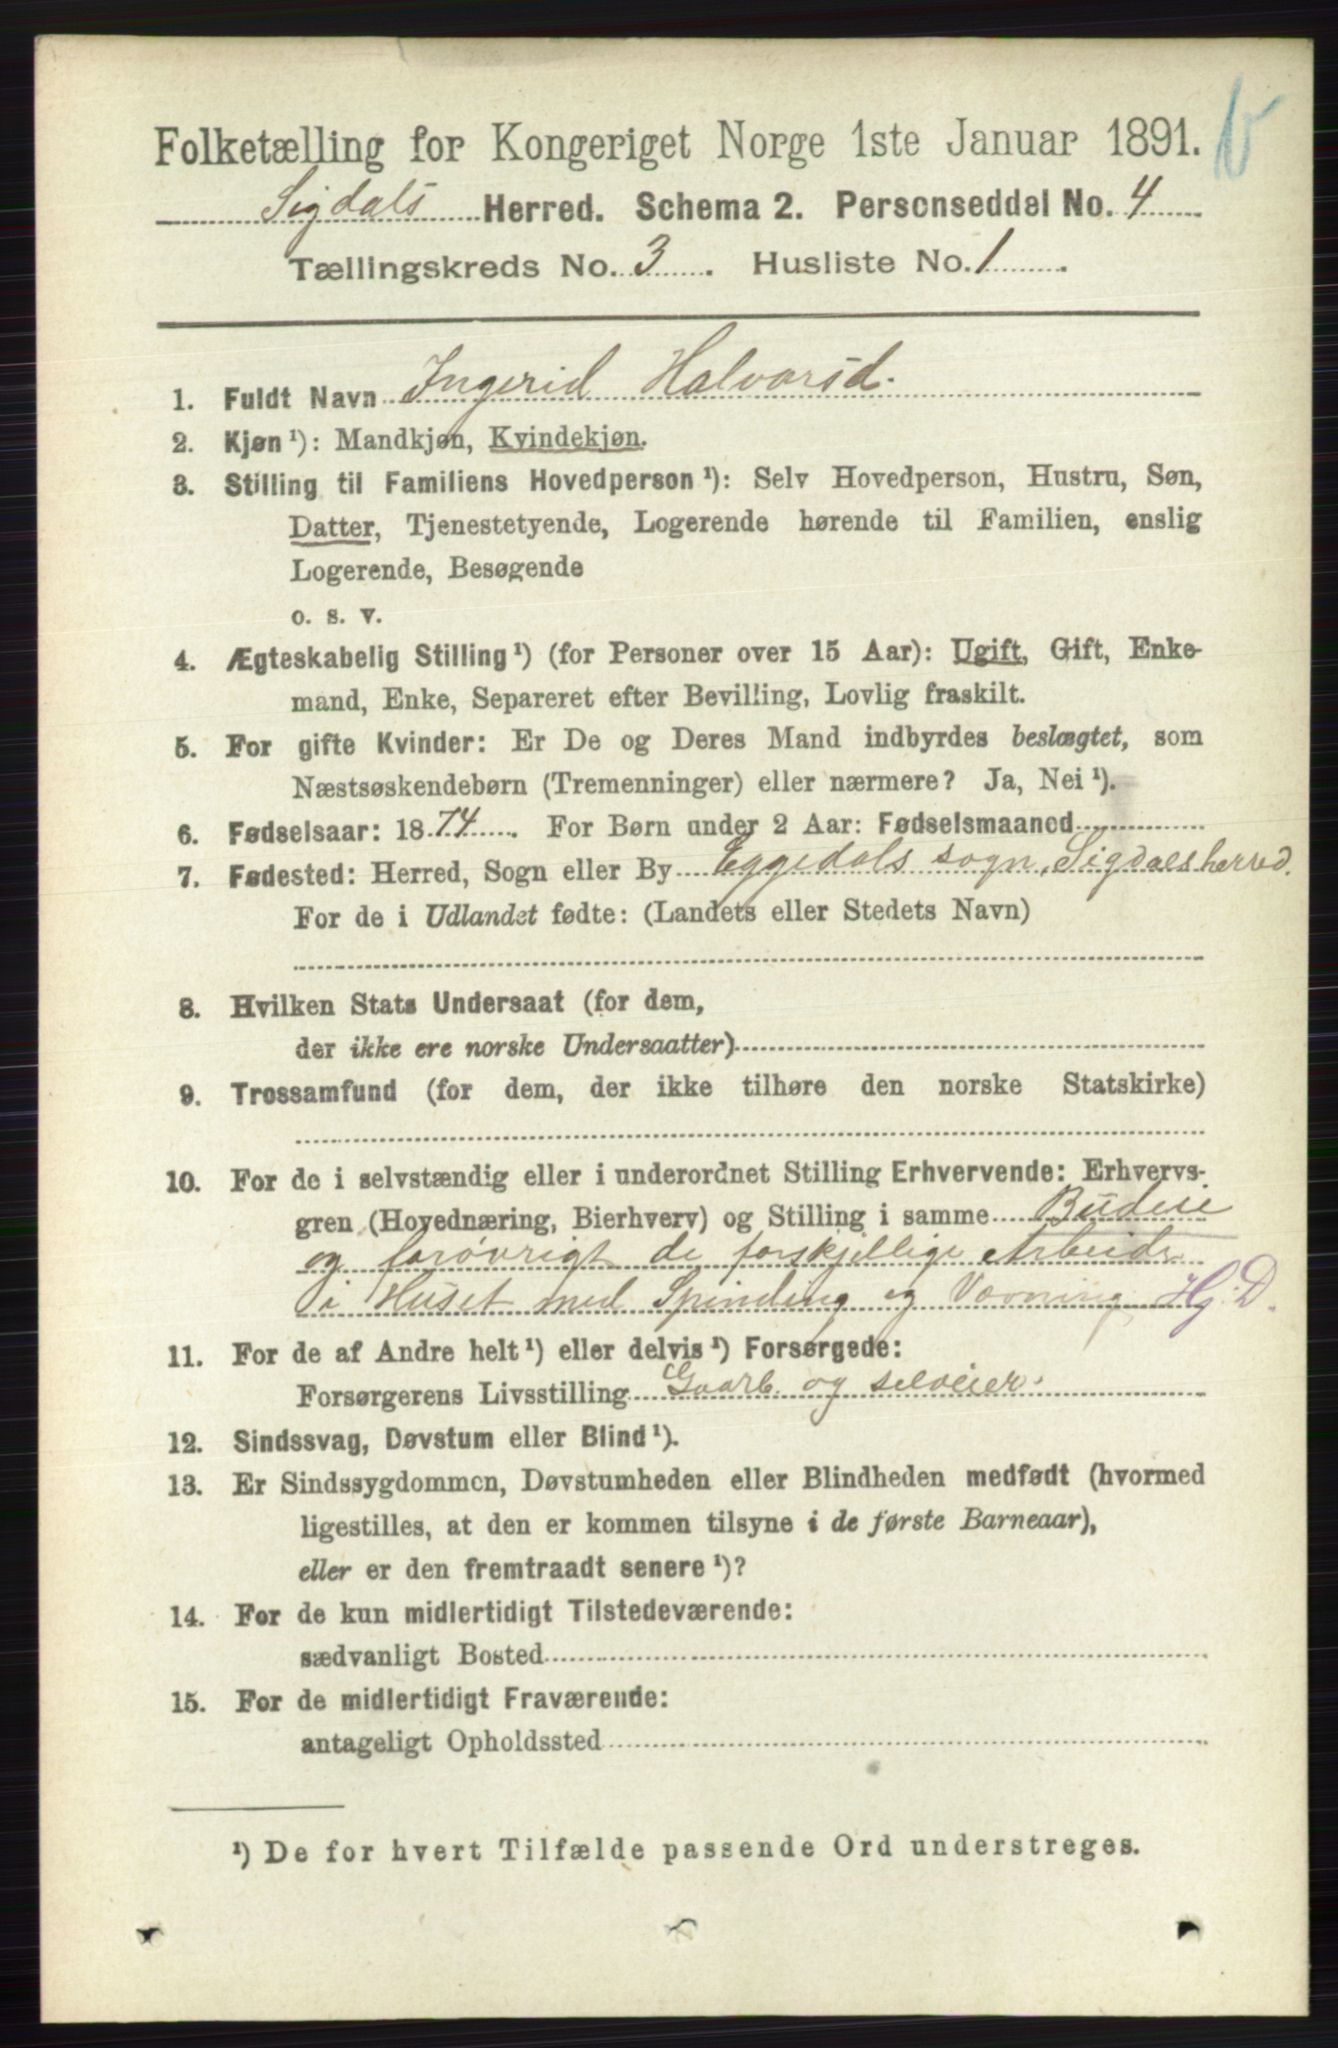 Folketælling for Kongeriget Norge 1ste Januar 1891.
Sigdals Herred. Schema 2. Personseddel No. 4
Tællingskreds No. 3 . Husliste No. 1 .
1. Fuldt Navn Ingerid Halvorsd.
2. Kjøn ¹): Mandkjøn, Kvindekjøn.
3. Stilling til Familiens Hovedperson ¹): Selv Hovedperson, Hustru, Søn,
Datter, Tjenestetyende, Logerende hørende til Familien, enslig
Logerende, Besøgende
o. s. v.
4. Ægteskabelig Stilling ¹) (for Personer over 15 Aar): Ugift, Gift, Enke-
mand, Enke, Separeret efter Bevilling, Lovlig fraskilt.
5. For gifte Kvinder: Er De og Deres Mand indbyrdes beslægtet, som
Næstsøskendebørn (Tremenninger) eller nærmere? Ja, Nei ¹).
6. Fødselsaar: 1874 . For Børn under 2 Aar: Fødselsmaaned
7. Fødested: Herred, Sogn eller By Eggedals sogn, Sigdals herred.
For de i Udlandet fødte: (Landets eller Stedets Navn)
8. Hvilken Stats Undersaat (for dem,
der ikke ere norske Undersaatter)
9. Trossamfund (for dem, der ikke tilhøre den norske Statskirke)
10. For de i selvstændig eller i underordnet Stilling Erhvervende: Erhvervs-
gren (Hovednæring, Bierhverv) og Stilling i samme Budeie
og forøvrigt de forskjellige Arbeide
i Huset med Spinding og Vævning Hj. D.
11. For de af Andre helt ¹) eller delvis ¹) Forsørgede:
Forsørgerens Livsstilling Gaarb. og selveier.
12. Sindssvag, Døvstum eller Blind ¹).
13. Er Sindssygdommen, Døvstumheden eller Blindheden medfødt (hvormed
ligestilles, at den er kommen tilsyne i de første Barneaar),
eller er den fremtraadt senere ¹)?
14. For de kun midlertidigt Tilstedeværende:
sædvanligt Bosted
15. For de midlertidigt Fraværende:
antageligt Opholdssted
¹) De for hvert Tilfælde passende Ord understreges.